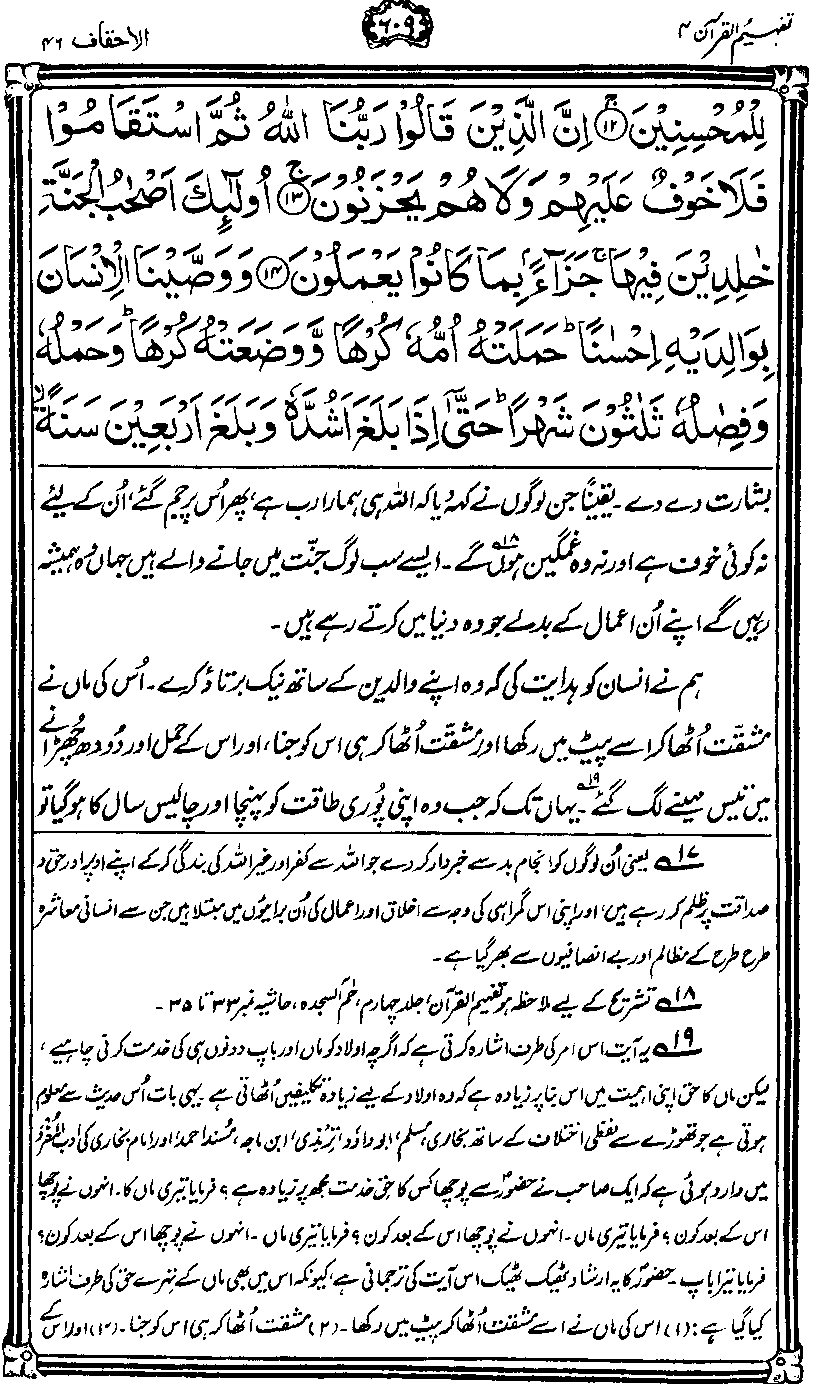 تفہیم القرآن ۴
۶۰۹
الاحقاف ۴۶
لِلْمُحْسِنِيْنَ ۚ‏﴿۱۲﴾ اِنَّ الَّذِيْنَ قَالُوْا رَبُّنَا اللّٰهُ ثُمَّ اسْتَقَامُوْا
فَلَا خَوْفٌ عَلَيْهِمْ وَلَا هُمْ يَحْزَنُوْنَ ۚ‏﴿۱۳﴾ اُولٰٓئِكَ اَصْحٰبُ الْجَنَّةِ
خٰلِدِيْنَ فِيْهَا ۚ جَزَآءًۢ بِمَا كَانُوْا يَعْمَلُوْنَ ﴿۱۴﴾ وَوَصَّيْنَا الْاِنْسَانَ
بِوَالِدَيْهِ اِحْسٰنًا ؕ حَمَلَتْهُ اُمُّهٗ كُرْهًا وَّوَضَعَتْهُ كُرْهًا ؕ وَحَمْلُهٗ
وَفِصٰلُهٗ ثَلٰثُوْنَ شَهْرًا ؕ حَتّٰٓى اِذَا بَلَغَ اَشُدَّهٗ وَبَلَغَ اَرْبَعِيْنَ سَنَةً ۙ
بشارت دے دے۔ یقیناً جن لوگوں نے کہہ دیا کہ اللہ ہی ہمارا رب ہے، پھر اُس پر جم گئے، اُن کے لیے
نہ کوئی خوف ہے اور نہ وہ غمگین ہوں گے۱۸۔ ایسے سب لوگ جنّت میں جانے والے ہیں جہاں وہ ہمیشہ
رہیں گے اپنے اُن اعمال کے بدلے جو وہ دنیا میں کرتے رہے ہیں۔
ہم نے انسان کو ہدایت کی کہ وہ اپنے والدین کے ساتھ نیک برتاؤ کرے۔ اُس کی ماں نے
مشقّت اُٹھا کر اسے پیٹ میں رکھا اور مشقّت اُٹھا کر ہی اس کو جنا، اور اس کے حمل اور دُودھ چھُڑانے
میں تیس مہینے لگ گئے۱۹۔ یہاں تک کہ جب وہ اپنی پُوری طاقت کو پہنچا اور چالیس سال کا ہو گیا تو
۱۷ یعنی اُن لوگوں کو انجامِ بد سے خبردار کر دے جو اللہ سے کفر اور غیر اللہ کی بندگی کر کے اپنے اوپر اور حق و
صداقت پر ظلم کر رہے ہیں، اور اپنی اس گمراہی کی وجہ سے اخلاق اور اعمال کی اُن برائیوں میں مبتلا ہیں جن سے انسانی معاشرہ
طرح طرح کے مظالم اور بے انصافیوں سے بھر گیا ہے۔
۱۸ تشریح کے لیے ملاحظہ ہو تفہیم القرآن، جلد چہارم، حٰمٓ السجدہ، حاشیہ نمبر ۳۳ تا ۳۵۔
۱۹ یہ آیت اس امر کی طرف اشارہ کرتی ہے کہ اگرچہ اولاد کو ماں اور باپ دونوں ہی کی خدمت کرنی چاہیے،
لیکن ماں کا حق اپنی اہمیت میں اس بنا پر زیادہ ہے کہ وہ اولاد کے لیے زیادہ تکلیفیں اُٹھاتی ہے۔ یہی بات اُس حدیث سے معلوم
ہوتی ہے جو تھوڑے سے لفظی اختلاف کے ساتھ بخاری، مسلم، ابوداؤد، ترمذی، ابن ماجہ، مُسند احمد اور امام بخاری کی ادب المفرد
میں وارد ہوئی ہے کہ ایک صاحب نے حضورؐ سے پوچھا کس کا حقِ خدمت مجھ پر زیادہ ہے؟ فرمایا تیری ماں کا۔ انہوں نے پوچھا
اس کے بعد کون؟ فرمایا تیری ماں۔ انہوں نے پوچھا اس کے بعد کون؟ فرمایا تیری ماں۔ انہوں نے پوچھا اس کے بعد کون؟
فرمایا تیرا باپ۔ حضورؐ کا یہ ارشاد ٹھیک ٹھیک اس آیت کی ترجمانی ہے، کیونکہ اس میں بھی ماں کے تہرے حق کی طرف اشارہ
کیا گیا ہے: (۱) اس کی ماں نے اسے مشقت اُٹھا کر پیٹ میں رکھا۔ (۲) مشقت اُٹھا کر ہی اس کو جنا۔ (۳) اور اس کے